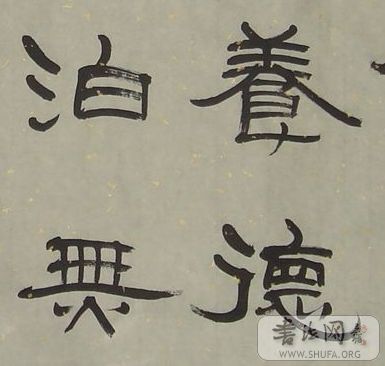 養德
泊無
書法网
WWW.SHUFA.ORG